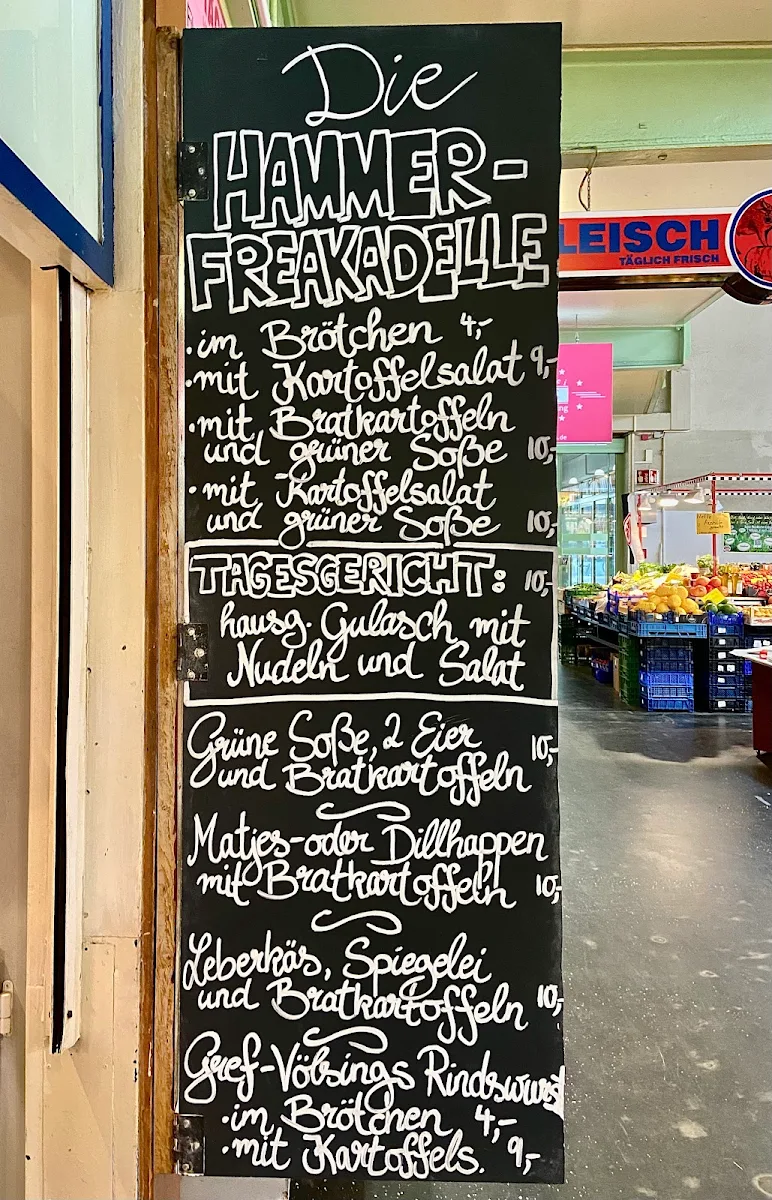 Die
HAMMER-
FREAKADELLE
·im Brötchen 4,-
·mit Kartoffelsalat 9,-
·mit Bratkartoffeln
und grüner Soße 10,-
·mit Kartoffelsalat
und grüner Soße 10,-
TAGESGERICHT: 10,-
hausg. Gulasch mit
Nudeln und Salat
Grüne Soße, 2 Eier 10,-
und Bratkartoffeln
Matjes-oder Dillhappen
mit Bratkartoffeln 10,-
Leberkäs, Spiegelei
und Bratkartoffeln 10,-
Gref-Völsings Rindswurst
·im Brötchen 4,-
·mit Kartoffels. 9,-
LEISCH
TÄGLICH FRISCH